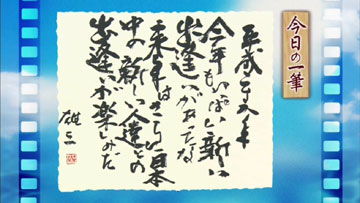 今日の一筆
平成 年
今年もいっぱい新しい
出逢いがあったな
来年はさらに日本
中の新しい人達との
出逢いが楽しみだ
雄三